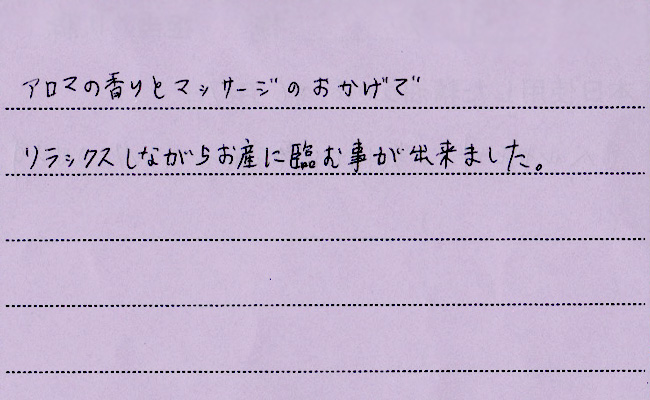 アロマの香りとマッサージのおかげで
リラックスしながらお産に臨む事が出来ました。